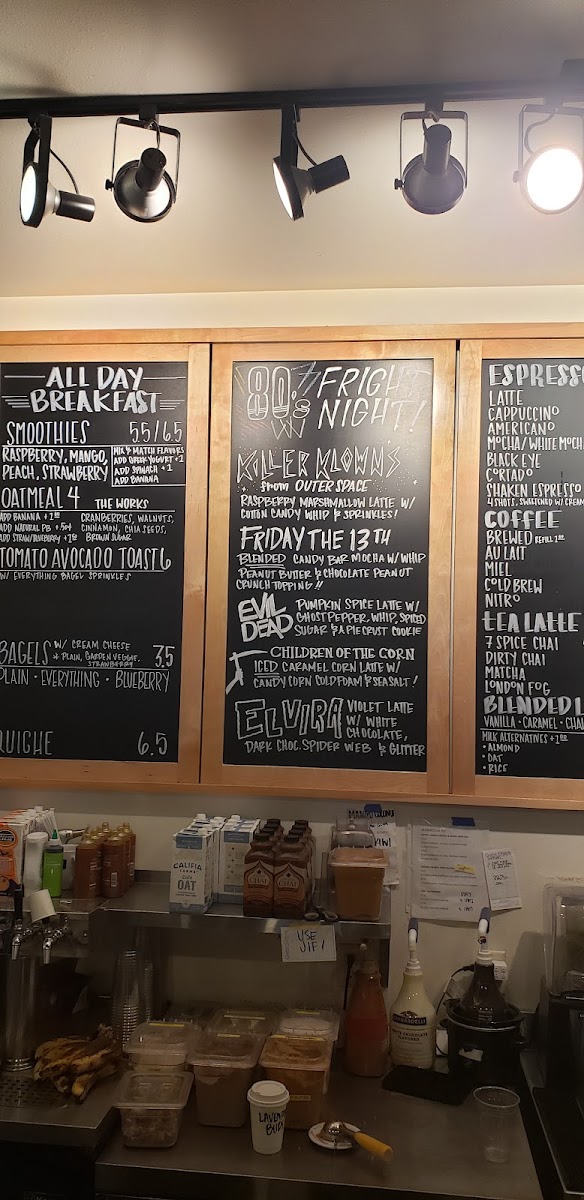 ALL DAY
BREAKFAST
SMOOTHIES 5.5/6.5
RASPBERRY, MANGO,
PEACH, STRAWBERRY
MIX & MATCH FLAVORS
ADD GREEK YOGURT +1
ADD SPINACH +1
ADD BANANA
OATMEAL 4 THE WORKS
ADD BANANA +1
ADD NATURAL PB +.50
ADD STRAW/BLUEBERRY +1
CRANBERRIES, WALNUTS,
CINNAMON, CHIA SEEDS,
BROWN SUGAR
TOMATO AVOCADO TOAST 6
W/ EVERYTHING BAGEL SPRINKLES
BAGELS W/ CREAM CHEESE 3.5
* PLAIN, GARDEN VEGGIE,
STRAWBERRY
PLAIN • EVERYTHING • BLUEBERRY
QUICHE 6.5
80's FRIGHT
NIGHT!
KILLER KLOWNS
from OUTER SPACE
RASPBERRY MARSHMALLOW LATTE W/
COTTON CANDY WHIP & SPRINKLES!
FRIDAY THE 13TH
BLENDED CANDY BAR MOCHA W/ WHIP
PEANUT BUTTER & CHOCOLATE PEANUT
CRUNCH TOPPING!!
EVIL
DEAD
PUMPKIN SPICE LATTE W/
GHOST PEPPER WHIP, SPICED
SUGAR & A PIECRUST COOKIE
CHILDREN OF THE CORN
ICED CARAMEL CORN LATTE W/
CANDY CORN COLDFOAM & SEASALT!
ELVIRA VIOLET LATTE
W/ WHITE
CHOCOLATE,
DARK CHOC. SPIDER WEB & GLITTER
ESPRESSO
LATTE
CAPPUCCINO
AMERICANO
MOCHA/WHITE MOCHA
BLACK EYE
CORTADO
SHAKEN ESPRESSO
4 SHOTS, SWEETENED W/ CREAM
COFFEE
BREWED REFILL 1.00
AU LAIT
MIEL
COLD BREW
NITRO
TEA LATTE
7 SPICE CHAI
DIRTY CHAI
MATCHA
LONDON FOG
BLENDED L
VANILLA • CARAMEL • CHAI
MILK ALTERNATIVES +1.00
• ALMOND
• OAT
• RICE
CALIFIA
FARMS
OAT
CHAI
CHAI
USE
JIF!
LAVENDER